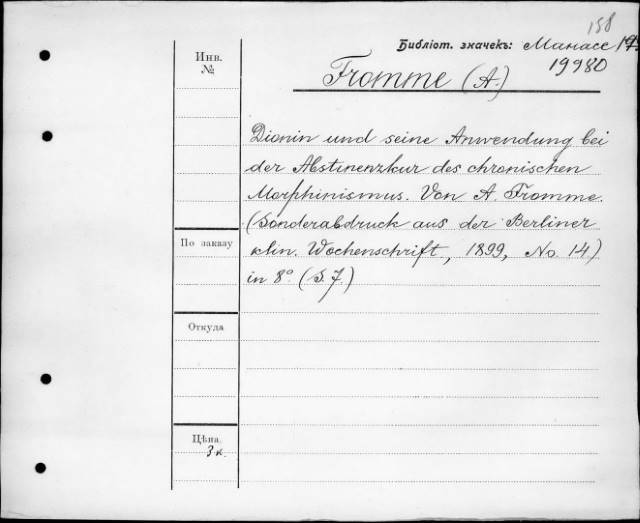 158
Библіот. значекъ: Манасс
19980
Инв.
№
Fromme (A.)
Dionin und seine Anwendung bei
der Abstinenzkur des chronischen
Morphinismus. Von A. Fromme.
(Sonderabdruck aus der Berliner
klin. Wochenschrift, 1899, No. 14)
in 8° (S. 7.)
По заказу
Откуда
Цѣна.
3 к.